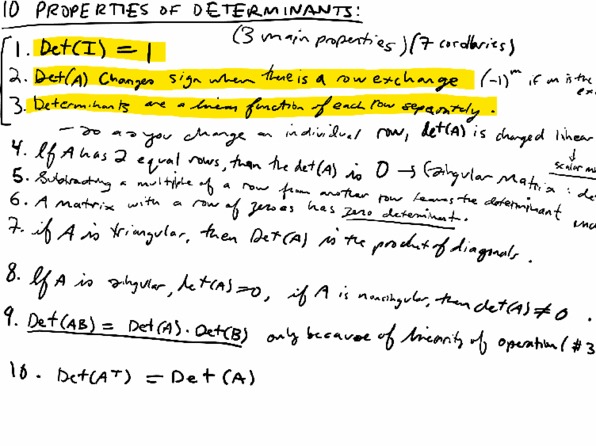 10 PROPERTIES OF DETERMINANTS:
(3 main properties) (7 corollaries)
1. Det(I) = 1
2. Det(A) Changes sign when there is a row exchange (-1)^m if m is the
3. Determinants are a linear function of each row separately.
- so as you change an individual row, det(A) is changed linear
4. If A has 2 equal rows, then the det(A) is 0 → Singular Matrix :
5. Subtracting a multiple of a row from another row leaves the determinant
6. A matrix with a row of zeros has zero determinant.
7. if A is triangular, then Det(A) is the product of diagonals.
8. If A is singular, det(A)=0, if A is nonsingular, then det(A) ≠ 0.
9. Det(AB) = Det(A) · Det(B) only because of linearity of operation (#3
10. Det(A^T) = Det(A)